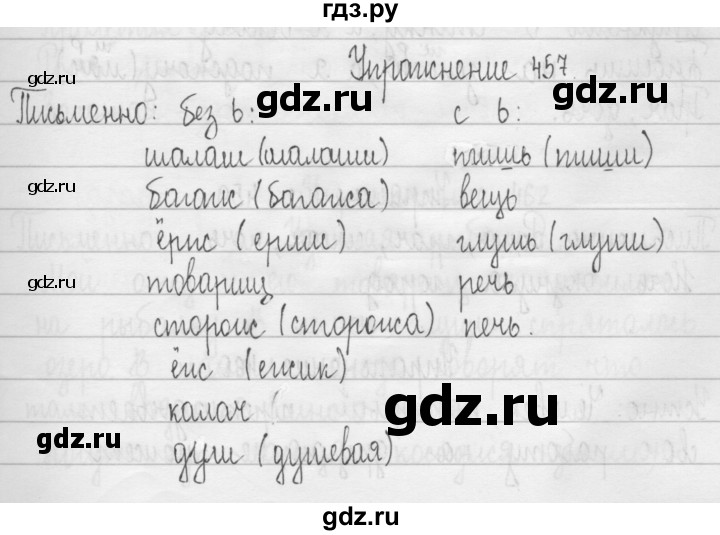 гдз.ру
Упражнение 457.
Письменно: без ь: с ь:
шалаш (шалаши) мышь (мыши)
багаж (багажа) вещь
ёрш (ерши) глушь (глуши)
товарищ речь
сторож (сторожа) печь.
ёж (ежик)
калач
душ (душевая)
gdz.ru
gdz.ru
gdz.ru
gdz.ru
gdz.ru
gdz.ru
gdz.ru
gdz.ru